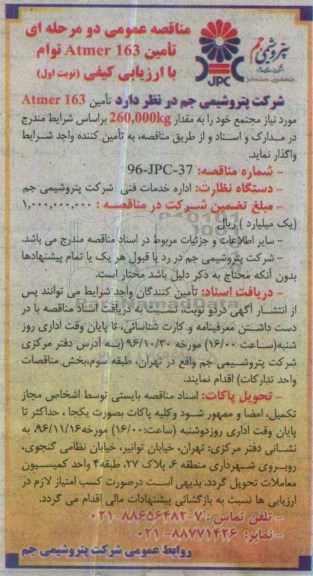 پتروشیمی جم
JPC
مناقصه عمومی دو مرحله ای
تأمین Atmer 163 توام
با ارزیابی کیفی (نوبت اول)
شرکت پتروشیمی جم در نظر دارد تأمین Atmer 163
مورد نیاز مجتمع خود را به مقدار 260,000kg براساس شرایط مندرج
در مدارک و اسناد و از طریق مناقصه، به تأمین کننده واجد شرایط
واگذار نماید.
- شماره مناقصه: 96-JPC-37
- دستگاه نظارت: اداره خدمات فنی شرکت پتروشیمی جم
- مبلغ تضمین شرکت در مناقصه : ۱,۰۰۰,۰۰۰,۰۰۰
(یک میلیارد) ریال
- سایر اطلاعات و جزئیات مربوط در اسناد مناقصه مندرج می باشد.
- شرکت پتروشیمی جم در رد یا قبول هر یک یا تمام پیشنهادها
بدون آنکه محتاج به ذکر دلیل باشد مختار است.
- دریافت اسناد: تأمین کنندگان واجد شرایط می توانند پس
از انتشار آگهی نوبت، نسبت به دریافت اسناد مناقصه با در
دست داشتن معرفینامه و کارت شناسائی، تا پایان وقت اداری روز
شنبه(ساعت ۱۶/۰۰) مورخه ۹۶/۱۰/۳۰ (به آدرس دفتر مرکزی
شرکت پتروشیمی جم واقع در تهران، طبقه سوم،بخش مناقصات
واحد تدارکات) اقدام نمایند.
- تحویل پاکات: اسناد مناقصه بایستی توسط اشخاص مجاز
تکمیل، امضا و ممهور شود وکلیه پاکات بصورت یکجا ، حداکثر تا
پایان وقت اداری روزدوشنبه (ساعت:۱۶/۰۰) مورخه۹۶/۱۱/۱۶، به
نشانی دفتر مرکزی: تهران، خیابان توانیر، خیابان نظامی گنجوی،
روبروی شهرداری منطقه ۶، پلاک ۲۷، طبقه۴ واحد کمیسیون
معاملات تحویل گردد. بدیهی است درصورت کسب امتیاز لازم در
ارزیابی ها نسبت به بازگشائی پیشنهادات مالی اقدام می گردد.
- تلفن تماس: ۷-۸۸۶۵۶۴۸۲-۰۲۱
- نمابر: ۸۸۷۷۱۴۲۶- ۰۲۱
روابط عمومی شرکت پتروشیمی جم